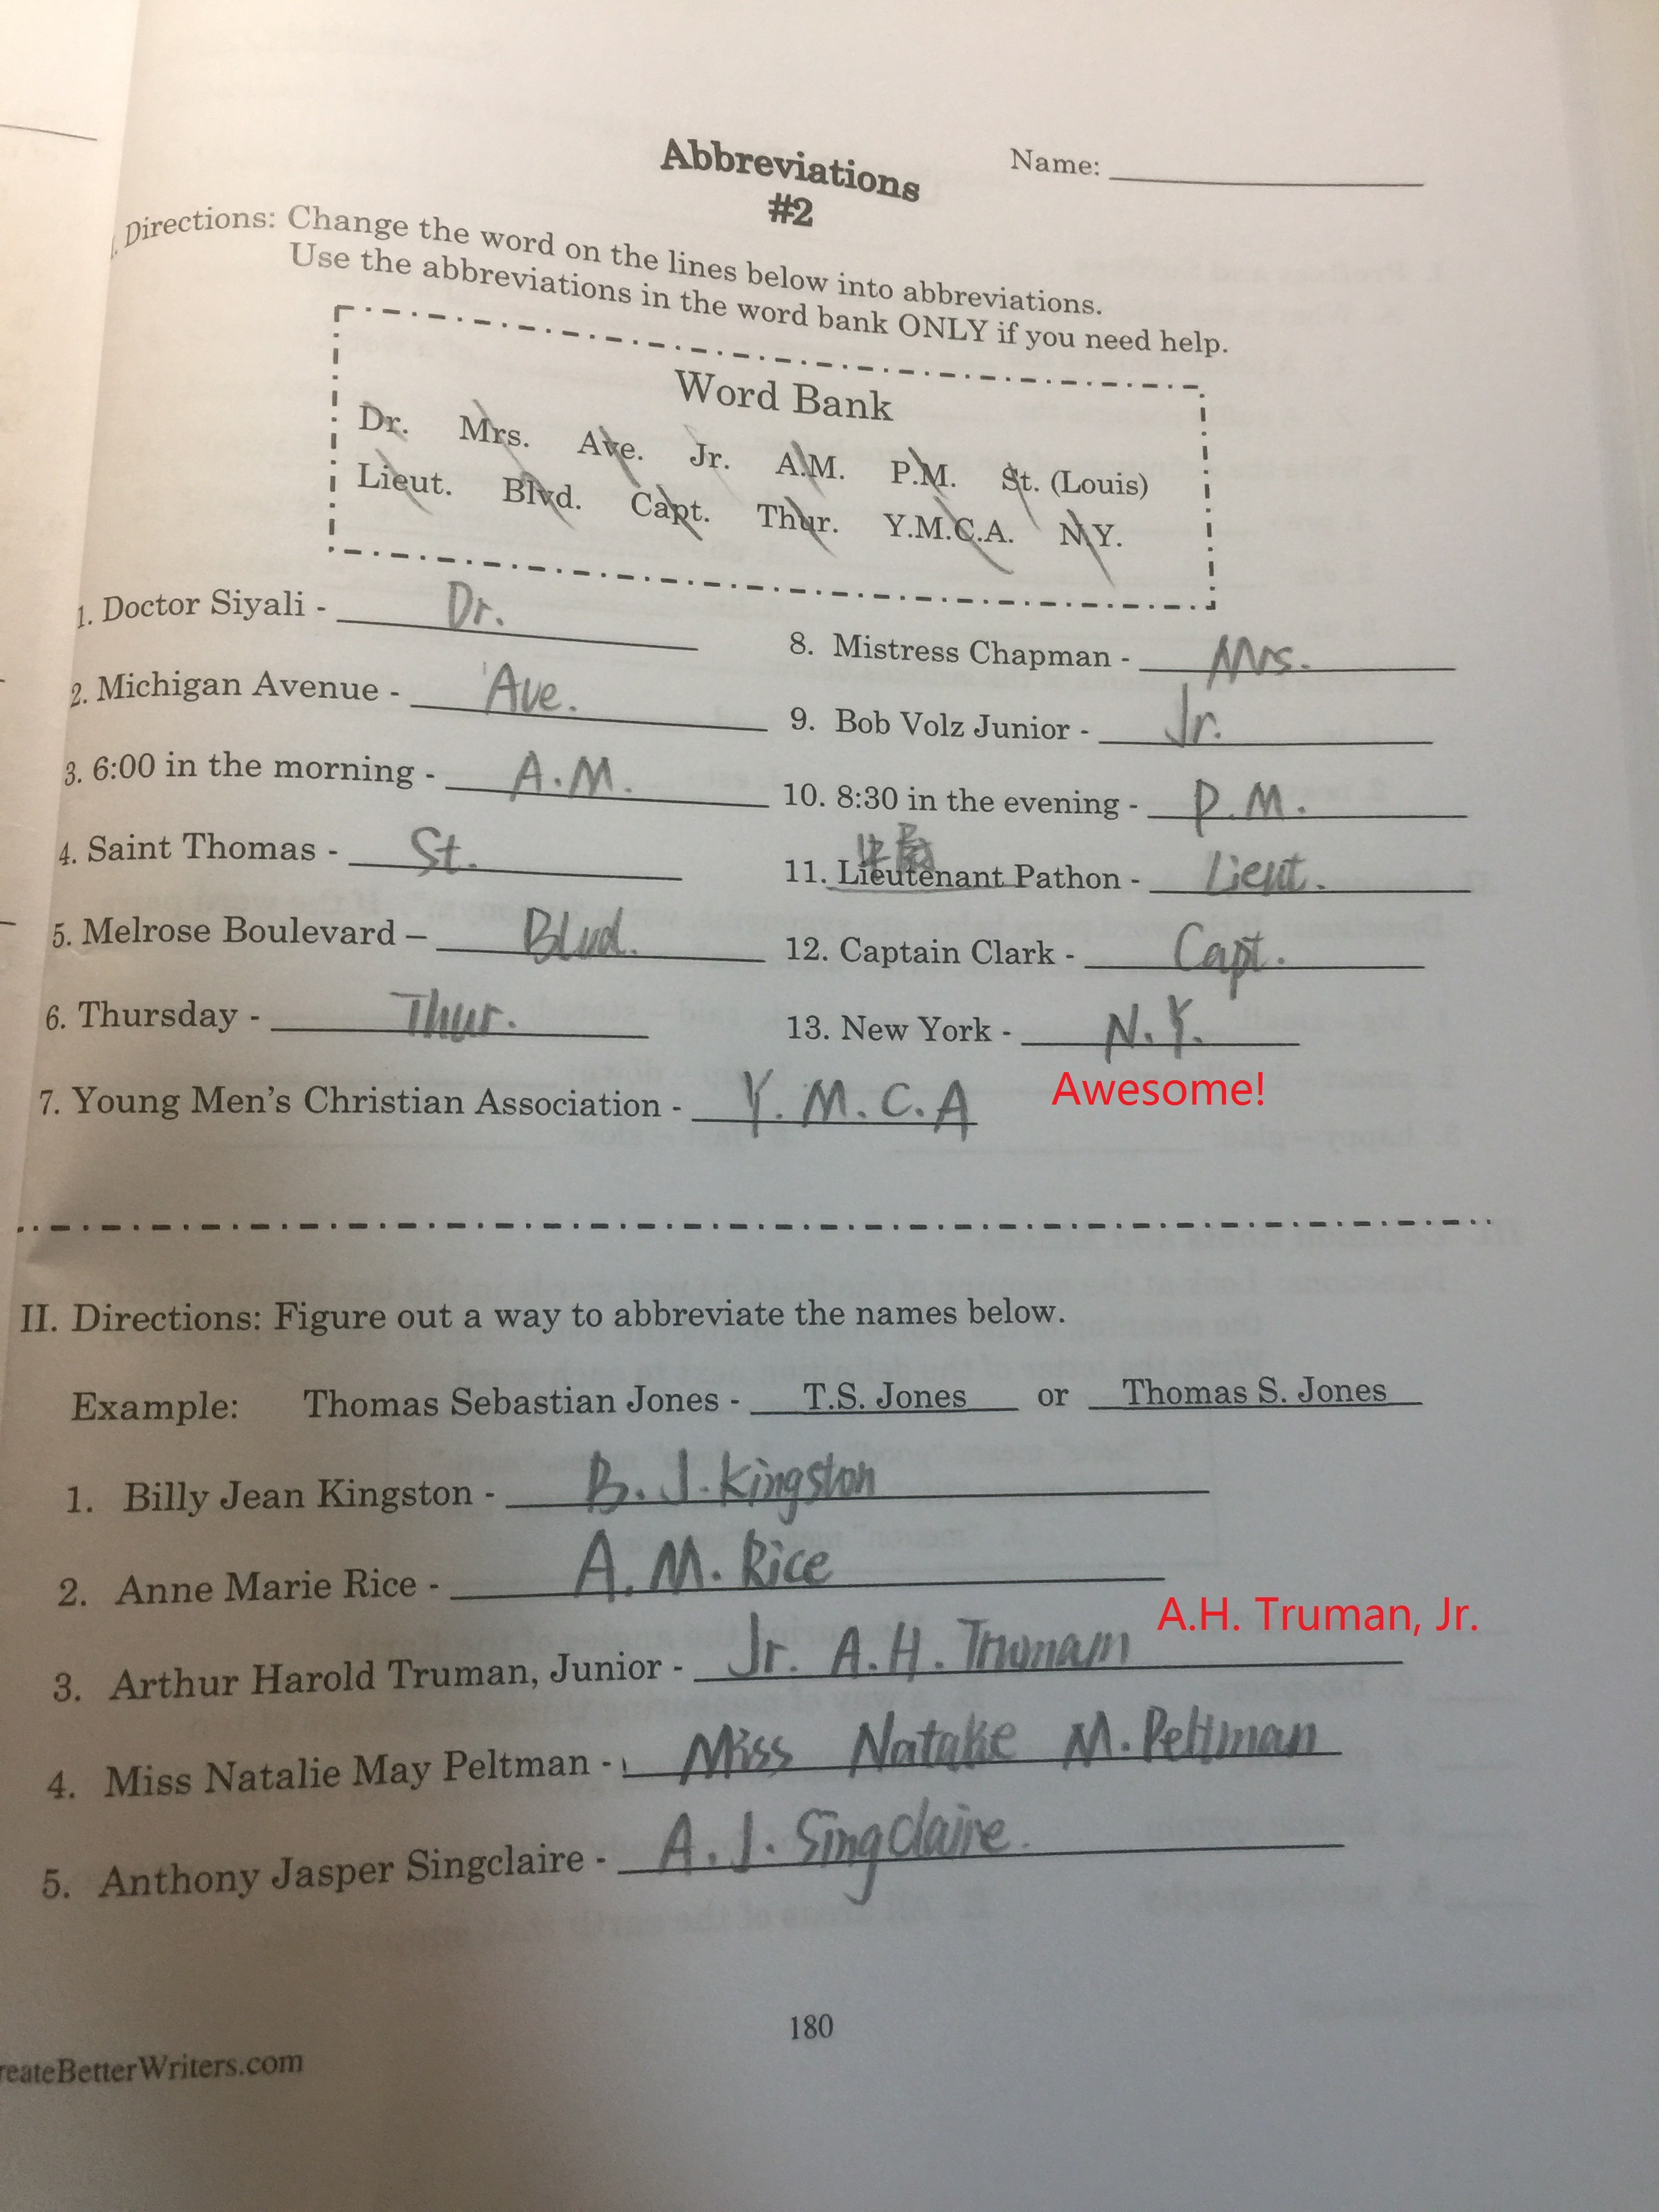 Abbreviations
#2
Name:
Directions: Change the word on the lines below into abbreviations.
Use the abbreviations in the word bank ONLY if you need help.
Word Bank
Dr. Mrs. Ave. Jr. A.M. P.M. St. (Louis)
Lieut. Blvd. Capt. Thur. Y.M.C.A. N.Y.
1. Doctor Siyali - Dr.
2. Michigan Avenue - Ave.
3. 6:00 in the morning - A.M.
4. Saint Thomas - St.
5. Melrose Boulevard – Blvd.
6. Thursday - Thur.
7. Young Men's Christian Association - Y.M.C.A
8. Mistress Chapman - Mrs.
9. Bob Volz Junior - Jr.
10. 8:30 in the evening - P.M.
11. Lieutenant Pathon - Lieut.
12. Captain Clark - Capt.
13. New York - N.Y.
Awesome!
II. Directions: Figure out a way to abbreviate the names below.
Example: Thomas Sebastian Jones - T.S. Jones or Thomas S. Jones
1. Billy Jean Kingston - B.J.Kingston
2. Anne Marie Rice - A.M.Rice
A.H. Truman, Jr.
3. Arthur Harold Truman, Junior - Jr. A.H.
4. Miss Natalie May Peltman - Miss M.Peltman
5. Anthony Jasper Singclaire - A.J.Singclaire.
180
reateBetterWriters.com